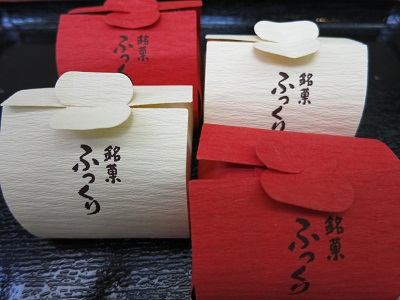 銘菓
ふっくり
銘菓
ふっくり
銘菓
ふっくり
銘菓
ふっくり